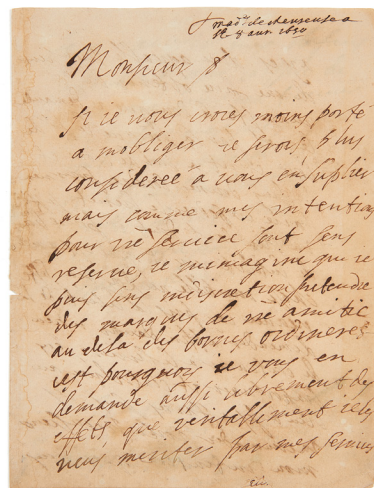 mad^e de chevreuse
le 8 avr. 1650
Monsieur
si ie vous croiës moins porté
a mobliger ie serois plus
considereeˢ a vous en suplier
mais comme mes intentions
pour vr̃e service sont sens
reserve, ie mimagine que ie
puis sens indiscretion pretendre
des marques de vr̃e amitie
au dela des bornes ordineres
cest pourquoy ie vous en
demande aussi librement des
effets que veritablement ie les
veus meriter par mes services